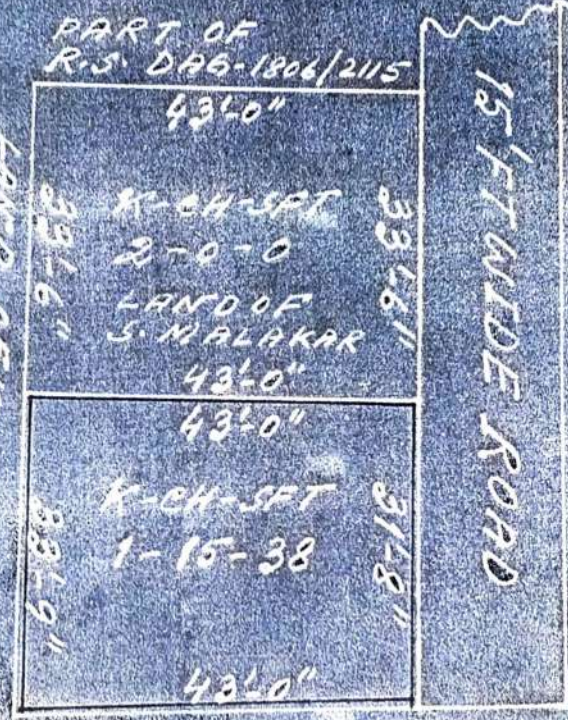 PART OF
R.S. DAG-1806/2115
43'-0"
33'-6"
K-CH-SFT
2-0-0
LAND OF
S. MALAKAR
33'-6"
43'-0"
43'-0"
K-CH-SFT
1-15-38
31'-8"
15 FT WIDE ROAD